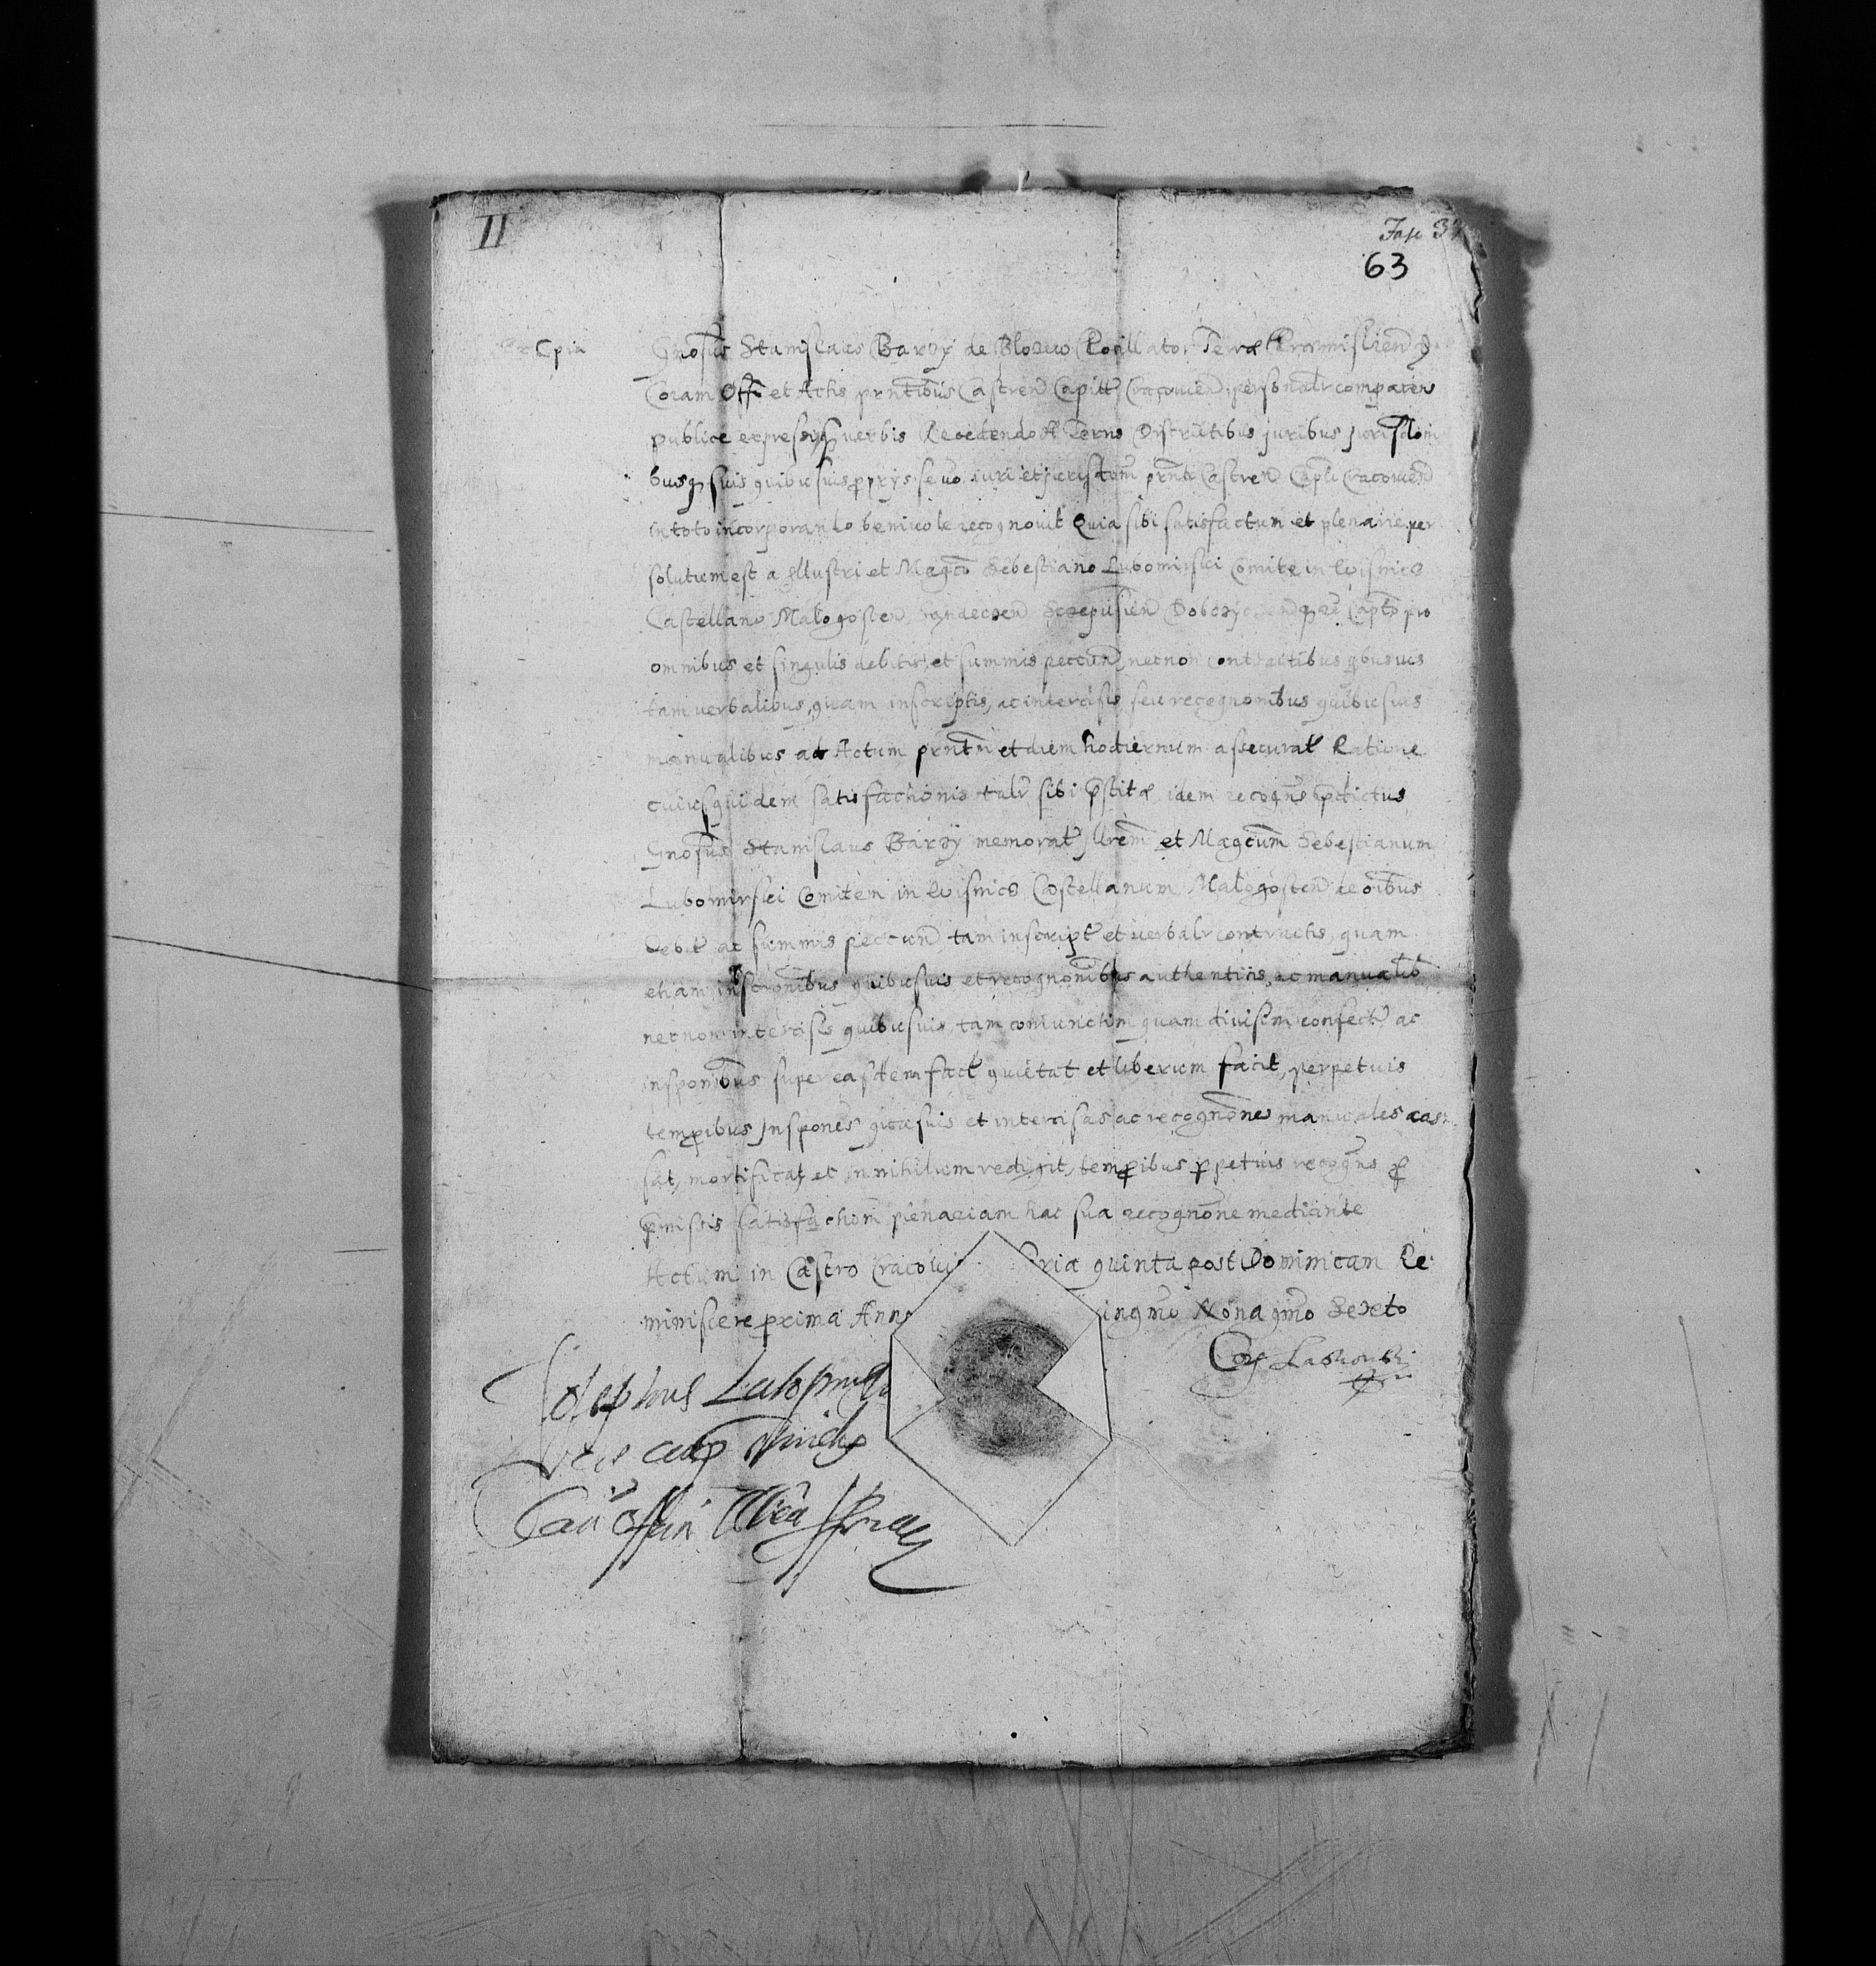 II
Fasc 34
63
Cpia
Gnosus Stanislaus Barzy de Blozew Pocillator Terræ Præmislien
Coram Offo et Actis prntibus Castren Capitt Cracovien personalr comparens
publice expressisq verbis Recedendo A Terris Districtibus juribus jurisdom
busq suis quibusvis pprys se vo iuri et jurisdom prnti Castren Capli Cracovien
in toto incorporando benivole recognovit Quia sibi satisfactum et plenarie per
solutum est a Illustri et Magco Sebestiano Lubomirski Comite in Wisnicz
Castellano Malogosten Sandecen Scepusien Dobczy Capto pro
omnibus et singulis debitis, et summis peccun necnon contractibus qbusvis
tam verbalibus, quam inscriptis, ac intercisis, seu recognonibus quibusvis
manualibus ad Actum prntem et diem hodiernum assecurat Ratione
cuiusquidem satisfactionis talr sibi pstitæ idem recogns pdictus
Gnosus Stanislaus Barzy memorat Illrem et Magcum Sebestianum
Lubomirski Comitem in Wisnicz Castellanum Malogosten de oibus
debit ac summis peccun tam inscript et verbalr contractis, quam
etiam inscronibus quibusvis et recognonibus authenticis, ac manualib
necnon intercisis quibusvis, tam coniunctim quam divisim confect ac
insponibus super easdem fact quietat et liberum facit, perpetuis
temporibus Inspones qucasvis et intercisas ac recognones manuales cas
sat, mortificat, et in nihilum redigit, temporibus ppetuis recogns
pmissis satisfactiom plenariam hac sua recognone mediante
Actum in Castro Cracovi ria quinta post Dominicam Re
miniscere proxima Ann ingmo Nonagmo Sexto